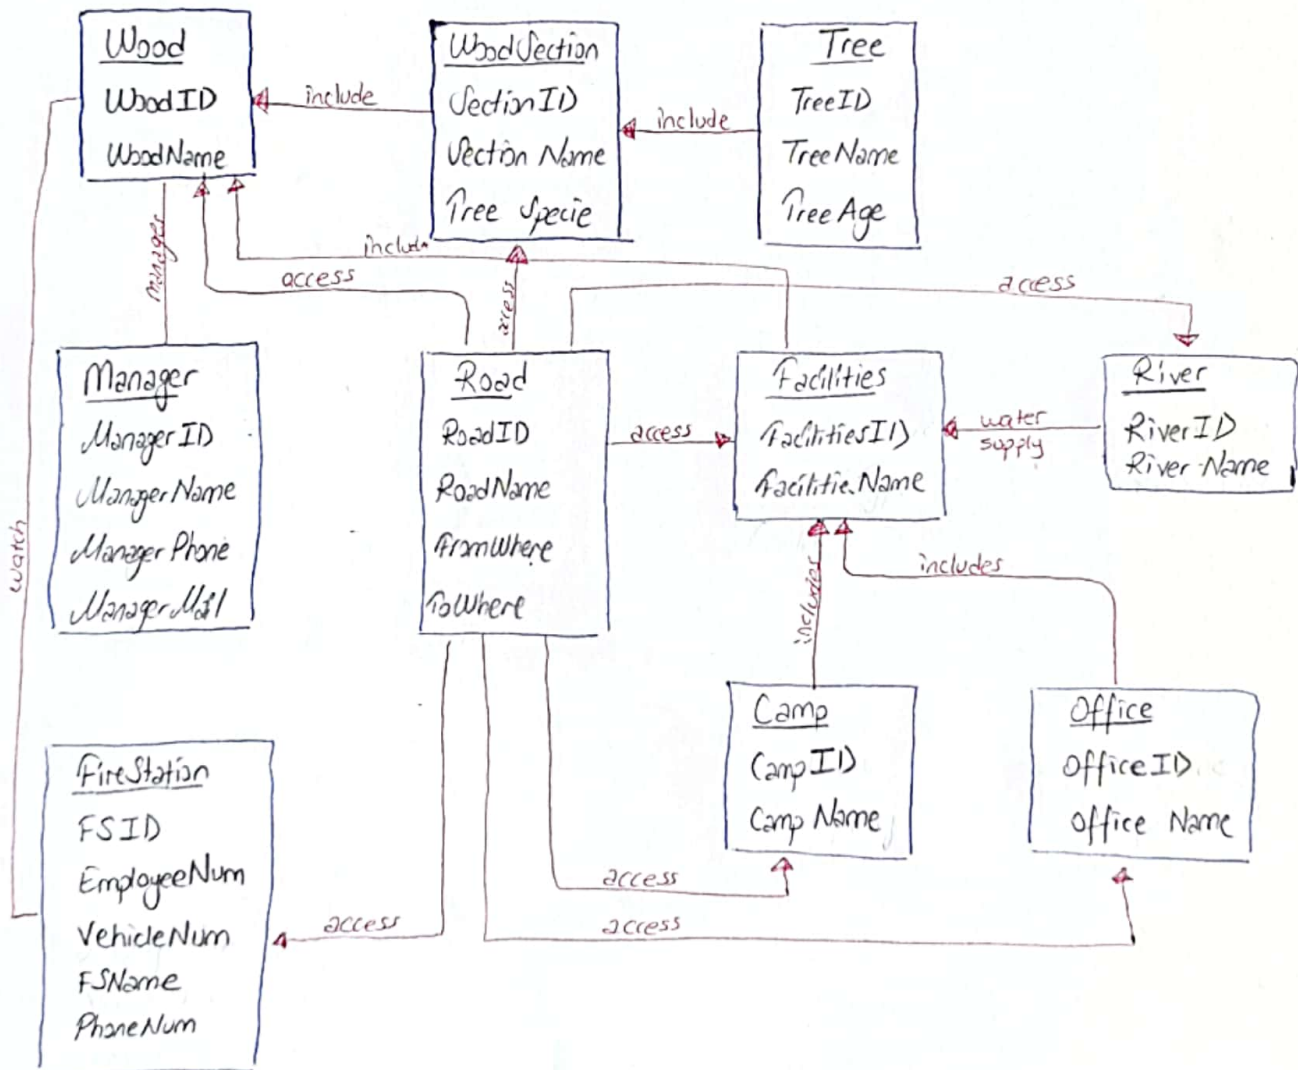 Wood
WoodID
WoodName
include
WoodSection
SectionID
Section Name
Tree Specie
include
Tree
TreeID
TreeName
TreeAge
manages
include
access
access
access
Manager
ManagerID
ManagerName
ManagerPhone
ManagerMail
watch
Road
RoadID
RoadName
FromWhere
ToWhere
access
Facilities
FacilitiesID
Facilitie.Name
water
supply
River
RiverID
River Name
includes
includes
Camp
CampID
Camp Name
Office
OfficeID
Office Name
FireStation
FSID
EmployeeNum
VehicleNum
FSName
PhoneNum
access
access
access